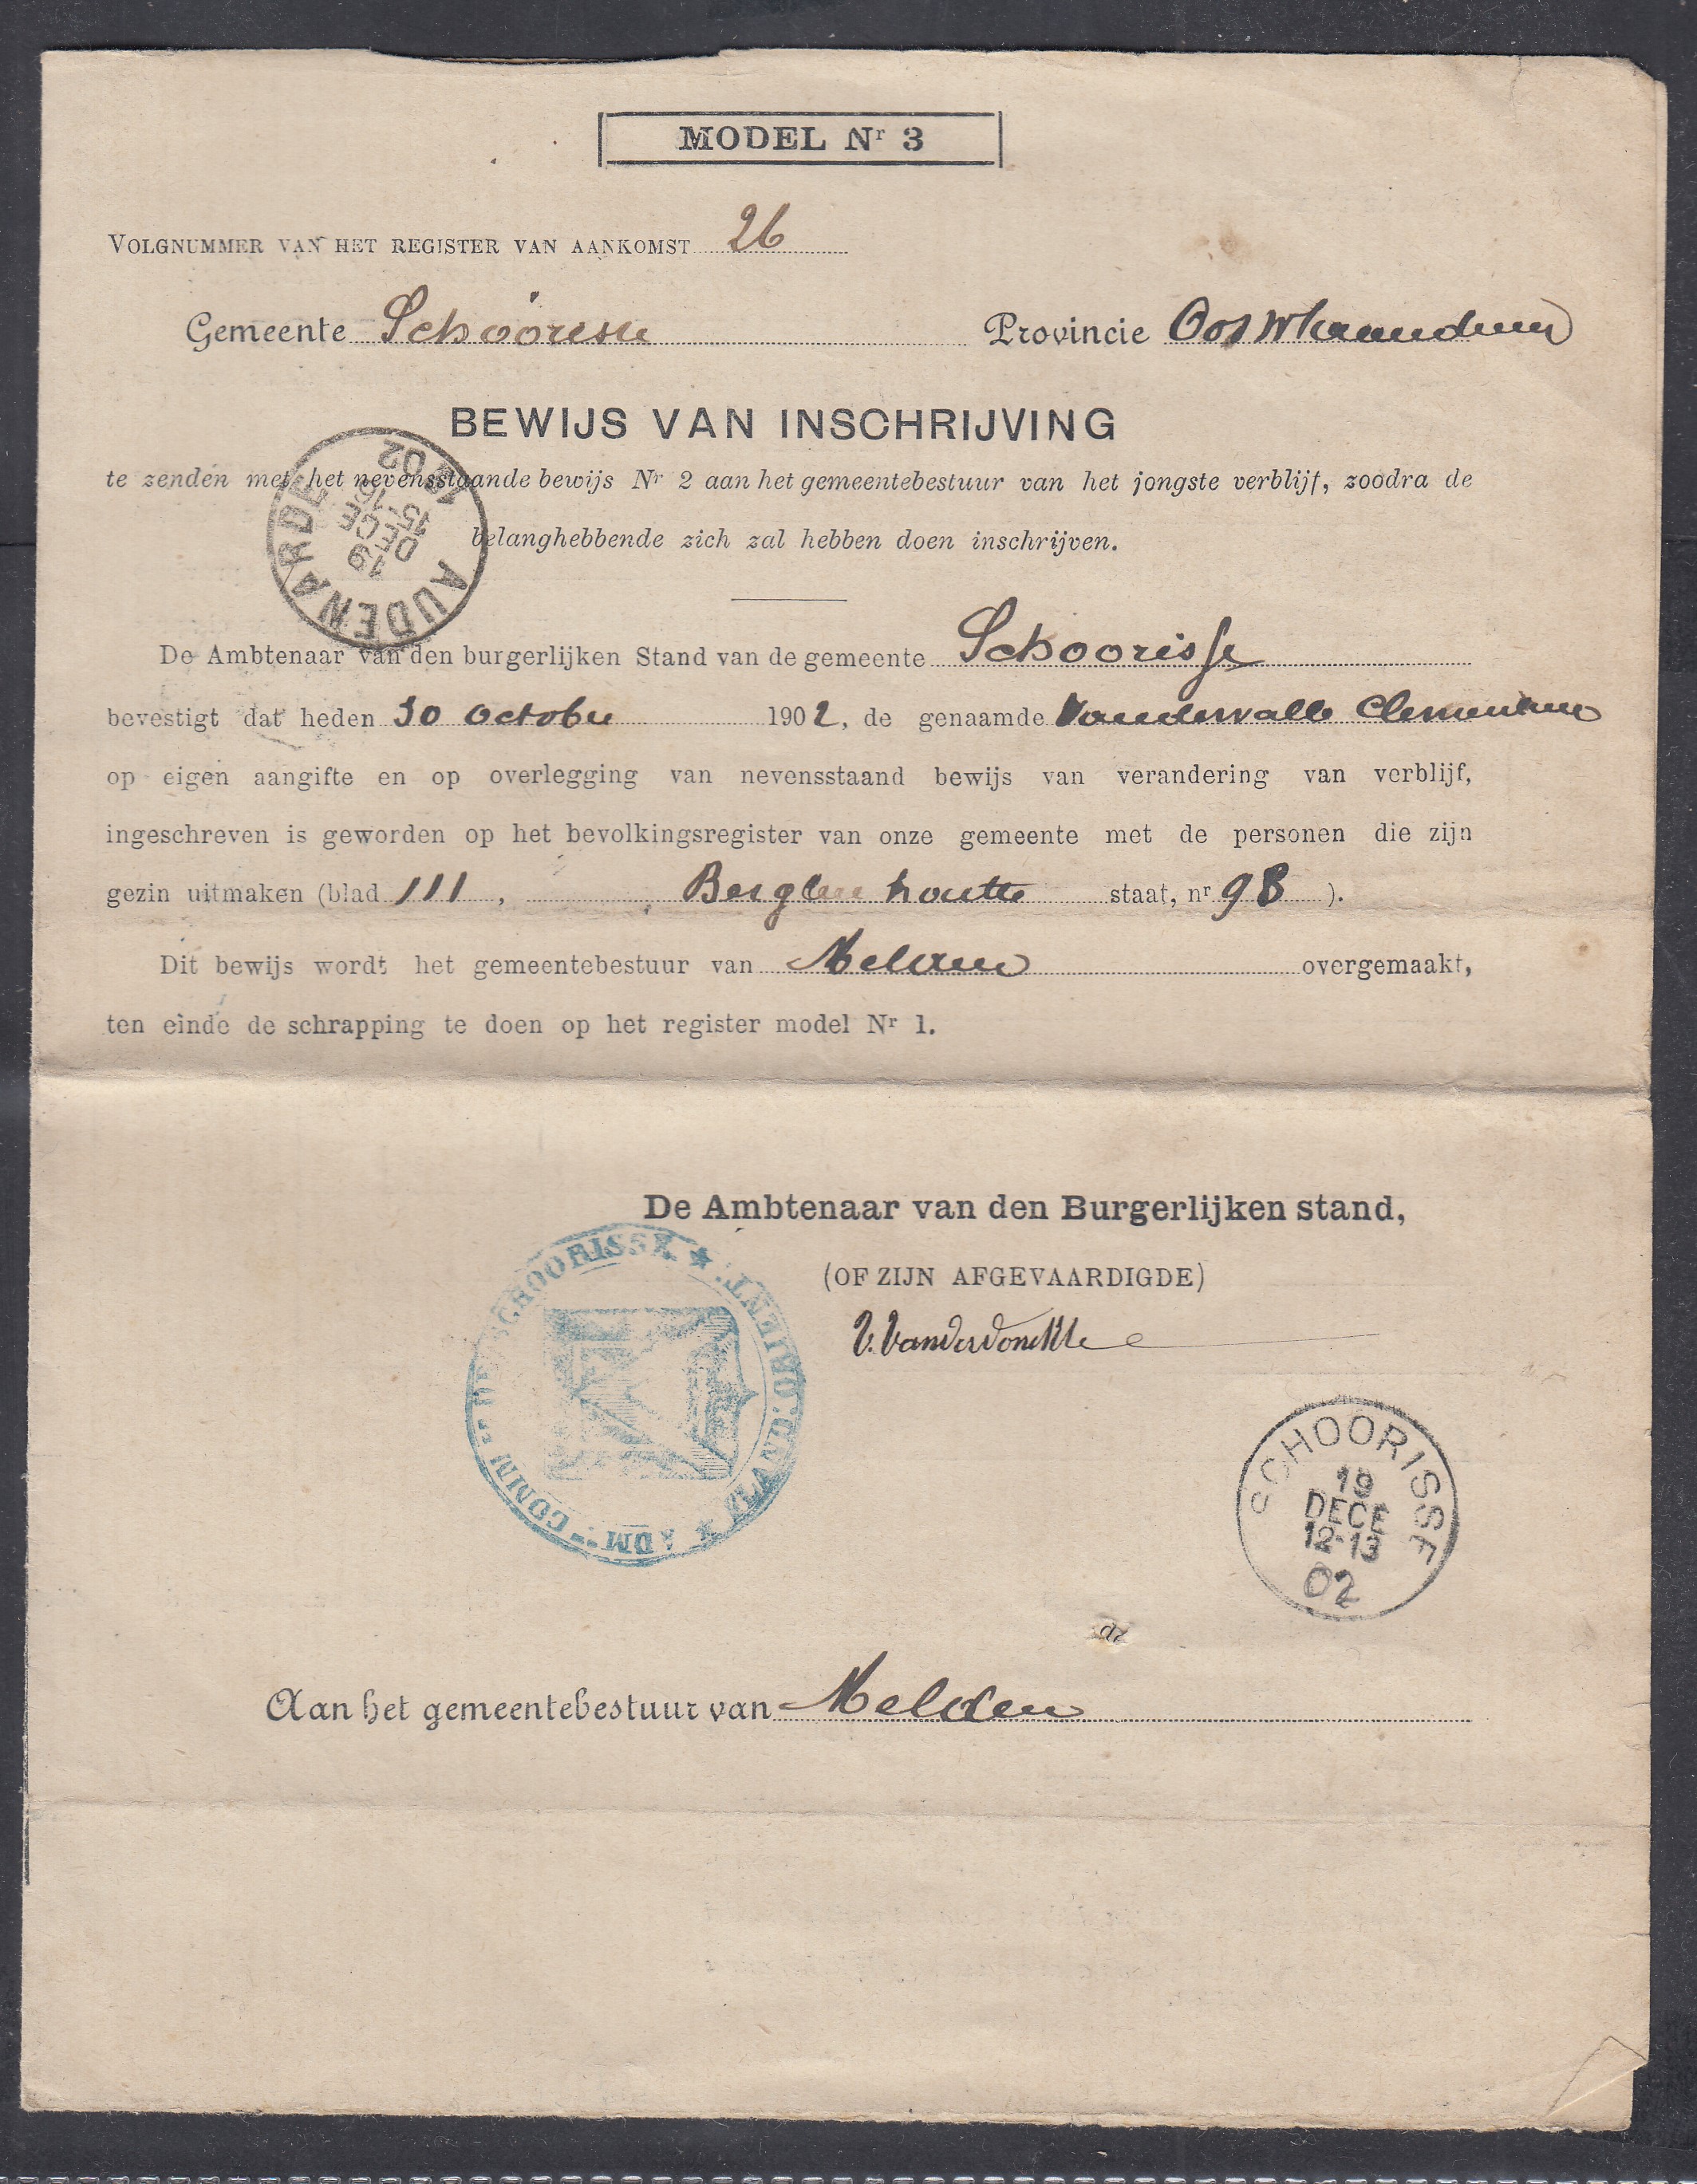 MODEL Nr 3
VOLGNUMMER VAN HET REGISTER VAN AANKOMST 26
Gemeente Schoorisse Provincie Oostvlaanderen
BEWIJS VAN INSCHRIJVING
te zenden met het nevensstaande bewijs Nr 2 aan het gemeentebestuur van het jongste verblijf, zoodra de
belanghebbende zich zal hebben doen inschrijven.
AUDENARDE 19 DECE 15-16 1902
De Ambtenaar van den burgerlijken Stand van de gemeente Schoorisse
bevestigt dat heden 30 October 1902, de genaamde Vandewalle
op eigen aangifte en op overlegging van nevensstaand bewijs van verandering van verblijf,
ingeschreven is geworden op het bevolkingsregister van onze gemeente met de personen die zijn
gezin uitmaken (blad 111, staat, nr 98 ).
Dit bewijs wordt het gemeentebestuur van Melden overgemaakt,
ten einde de schrapping te doen op het register model Nr 1.
De Ambtenaar van den Burgerlijken stand,
(OF ZIJN AFGEVAARDIGDE)
V. Vanderdonckt
ADMon COMMle DE SCHOORISSE ★ FLAND. ORIENT. ★
SCHOORISSE
19
DECE
12-13
02
Aan het gemeentebestuur van Melden